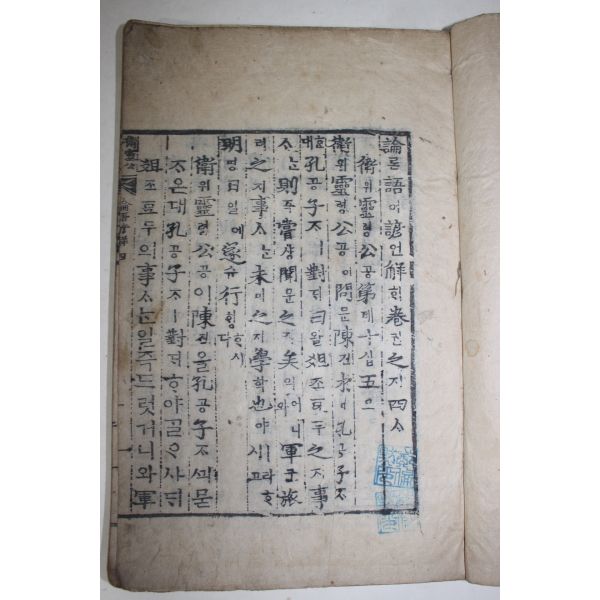 論론語어諺언解ᄒᆡ卷권之지四ᄉᆞ
衛위靈령公공第뎨十십五오
衛위靈령公공이問문陳진於어孔공子ᄌᆞ
ᄒᆞᆫ대孔공子ᄌᆞㅣ對ᄃᆡ曰왈俎조豆두之지事
ᄉᆞᄂᆞᆫ則즉嘗샹聞문之지矣의어니와軍군旅
려之지事ᄉᆞᄂᆞᆫ未미之지學ᄒᆞᆨ也야ㅣ라ᄒᆞ시고
明명日일에遂슈行ᄒᆡᆼᄒᆞ시다
衛위靈령公공이陳진을孔공子ᄌᆞᄭᅴ묻
ᄌᆞ온대孔공子ᄌᆞㅣ對ᄃᆡᄒᆞ야ᄀᆞᆯᄋᆞ샤ᄃᆡ
俎조豆두읫事ᄉᆞᄂᆞᆫ일즉드럿거니와軍
衛靈公 論語諺解四